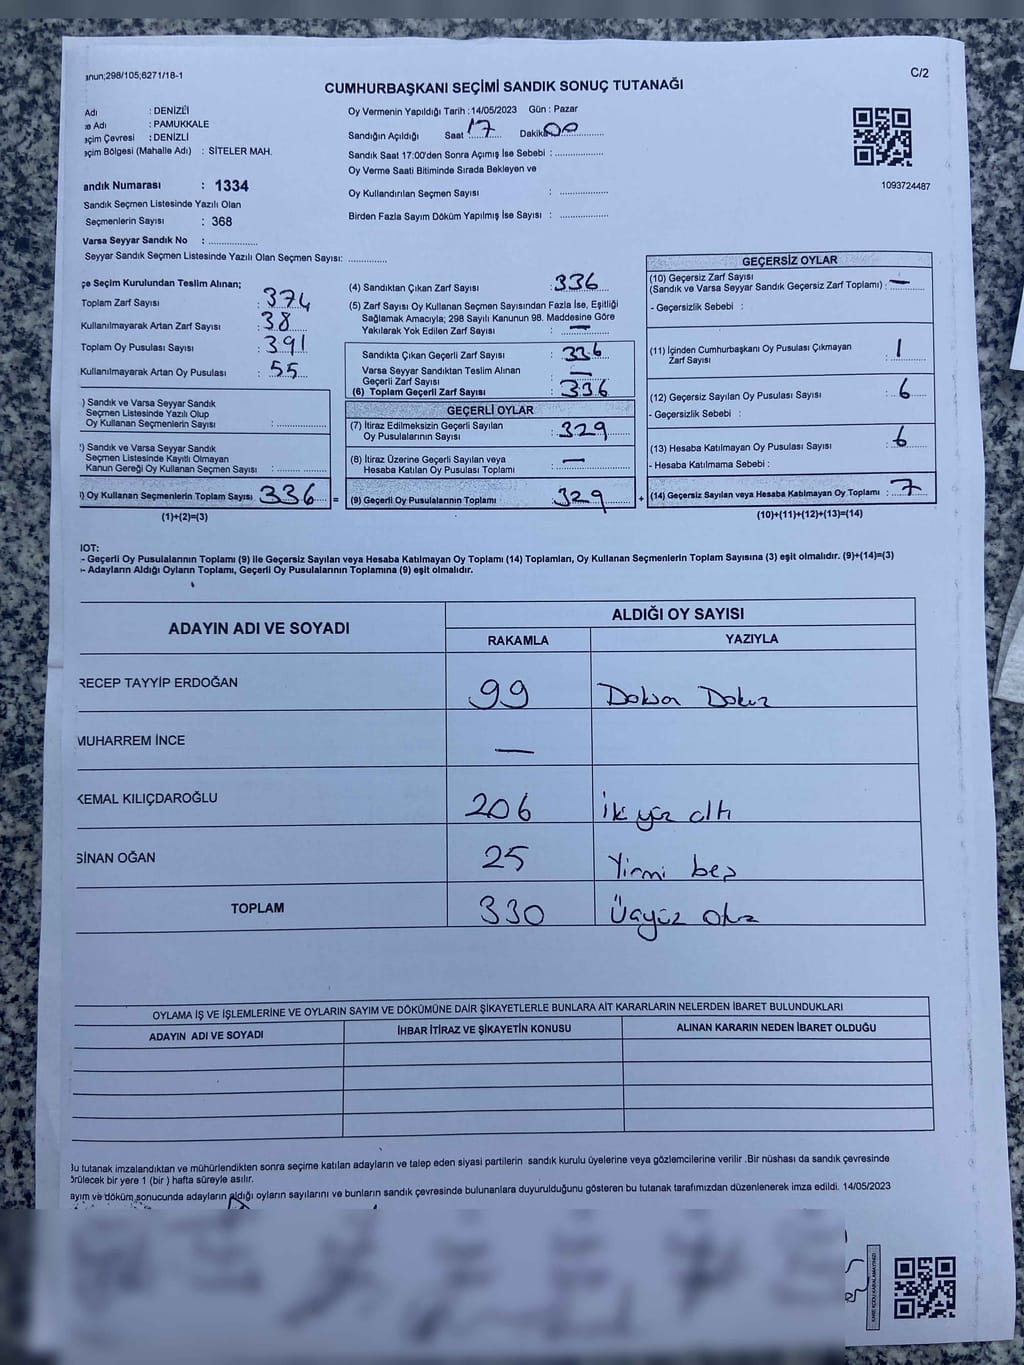 anun;298/105;6271/18-1
C/2
CUMHURBAŞKANI SEÇİMİ SANDIK SONUÇ TUTANAĞI
Adı : DENİZLİ
Adı : PAMUKKALE
çim Çevresi : DENİZLİ
çim Bölgesi (Mahalle Adı) : SİTELER MAH.
andık Numarası : 1334
Sandık Seçmen Listesinde Yazılı Olan
Seçmenlerin Sayısı : 368
Varsa Seyyar Sandık No : ..................
Seyyar Sandık Seçmen Listesinde Yazılı Olan Seçmen Sayısı: ..............
Oy Vermenin Yapıldığı Tarih :14/05/2023 Gün : Pazar
Sandığın Açıldığı Saat 17 Dakika 00
Sandık Saat 17:00'den Sonra Açımış İse Sebebi : ..................
Oy Verme Saati Bitiminde Sırada Bekleyen ve
Oy Kullandırılan Seçmen Sayısı : ..................
Birden Fazla Sayım Döküm Yapılmış İse Sayısı : ..................
1093724487
çe Seçim Kurulundan Teslim Alınan;
Toplam Zarf Sayısı : 374
Kullanılmayarak Artan Zarf Sayısı : 38
Toplam Oy Pusulası Sayısı : 391
Kullanılmayarak Artan Oy Pusulası : 55
) Sandık ve Varsa Seyyar Sandık
Seçmen Listesinde Yazılı Olup
Oy Kullanan Seçmenlerin Sayısı : ..................
) Sandık ve Varsa Seyyar Sandık
Seçmen Listesinde Kayıtlı Olmayan
Kanun Gereği Oy Kullanan Seçmen Sayısı : ..................
) Oy Kullanan Seçmenlerin Toplam Sayısı 336 =
(1)+(2)=(3)
(4) Sandıktan Çıkan Zarf Sayısı : 336
(5) Zarf Sayısı Oy Kullanan Seçmen Sayısından Fazla İse, Eşitliği
Sağlamak Amacıyla; 298 Sayılı Kanunun 98. Maddesine Göre
Yakılarak Yok Edilen Zarf Sayısı : —
Sandıkta Çıkan Geçerli Zarf Sayısı : 336
Varsa Seyyar Sandıktan Teslim Alınan
Geçerli Zarf Sayısı : —
(6) Toplam Geçerli Zarf Sayısı : 336
GEÇERLİ OYLAR
(7) İtiraz Edilmeksizin Geçerli Sayılan
Oy Pusulalarının Sayısı : 329
(8) İtiraz Üzerine Geçerli Sayılan veya
Hesaba Katılan Oy Pusulası Toplamı : —
(9) Geçerli Oy Pusulalarının Toplamı : 329 +
GEÇERSİZ OYLAR
(10) Geçersiz Zarf Sayısı
(Sandık ve Varsa Seyyar Sandık Geçersiz Zarf Toplamı) : —
- Geçersizlik Sebebi :
(11) İçinden Cumhurbaşkanı Oy Pusulası Çıkmayan
Zarf Sayısı : 1
(12) Geçersiz Sayılan Oy Pusulası Sayısı : 6
- Geçersizlik Sebebi :
(13) Hesaba Katılmayan Oy Pusulası Sayısı : 6
- Hesaba Katılmama Sebebi :
(14) Geçersiz Sayılan veya Hesaba Katılmayan Oy Toplamı : 7
(10)+(11)+(12)+(13)=(14)
IOT:
- Geçerli Oy Pusulalarının Toplamı (9) ile Geçersiz Sayılan veya Hesaba Katılmayan Oy Toplamı (14) Toplamları, Oy Kullanan Seçmenlerin Toplam Sayısına (3) eşit olmalıdır. (9)+(14)=(3)
- Adayların Aldığı Oyların Toplamı, Geçerli Oy Pusulalarının Toplamına (9) eşit olmalıdır.
ADAYIN ADI VE SOYADI
ALDIĞI OY SAYISI
RAKAMLA YAZIYLA
RECEP TAYYİP ERDOĞAN 99 Doksan Dokuz
MUHARREM İNCE —
KEMAL KILIÇDAROĞLU 206 İki yüz altı
SİNAN OĞAN 25 Yirmi beş
TOPLAM 330 Üçyüz otuz
OYLAMA İŞ VE İŞLEMLERİNE VE OYLARIN SAYIM VE DÖKÜMÜNE DAİR ŞİKAYETLERLE BUNLARA AİT KARARLARIN NELERDEN İBARET BULUNDUKLARI
ADAYIN ADI VE SOYADI İHBAR İTİRAZ VE ŞİKAYETİN KONUSU ALINAN KARARIN NEDEN İBARET OLDUĞU
Bu tutanak imzalandıktan ve mühürlendikten sonra seçime katılan adayların ve talep eden siyasi partilerin sandık kurulu üyelerine veya gözlemcilerine verilir .Bir nüshası da sandık çevresinde
örülecek bir yere 1 (bir ) hafta süreyle asılır.
ayım ve döküm sonucunda adayların aldığı oyların sayılarını ve bunların sandık çevresinde bulunanlara duyurulduğunu gösteren bu tutanak tarafımızdan düzenlenerek imza edildi. 14/05/2023